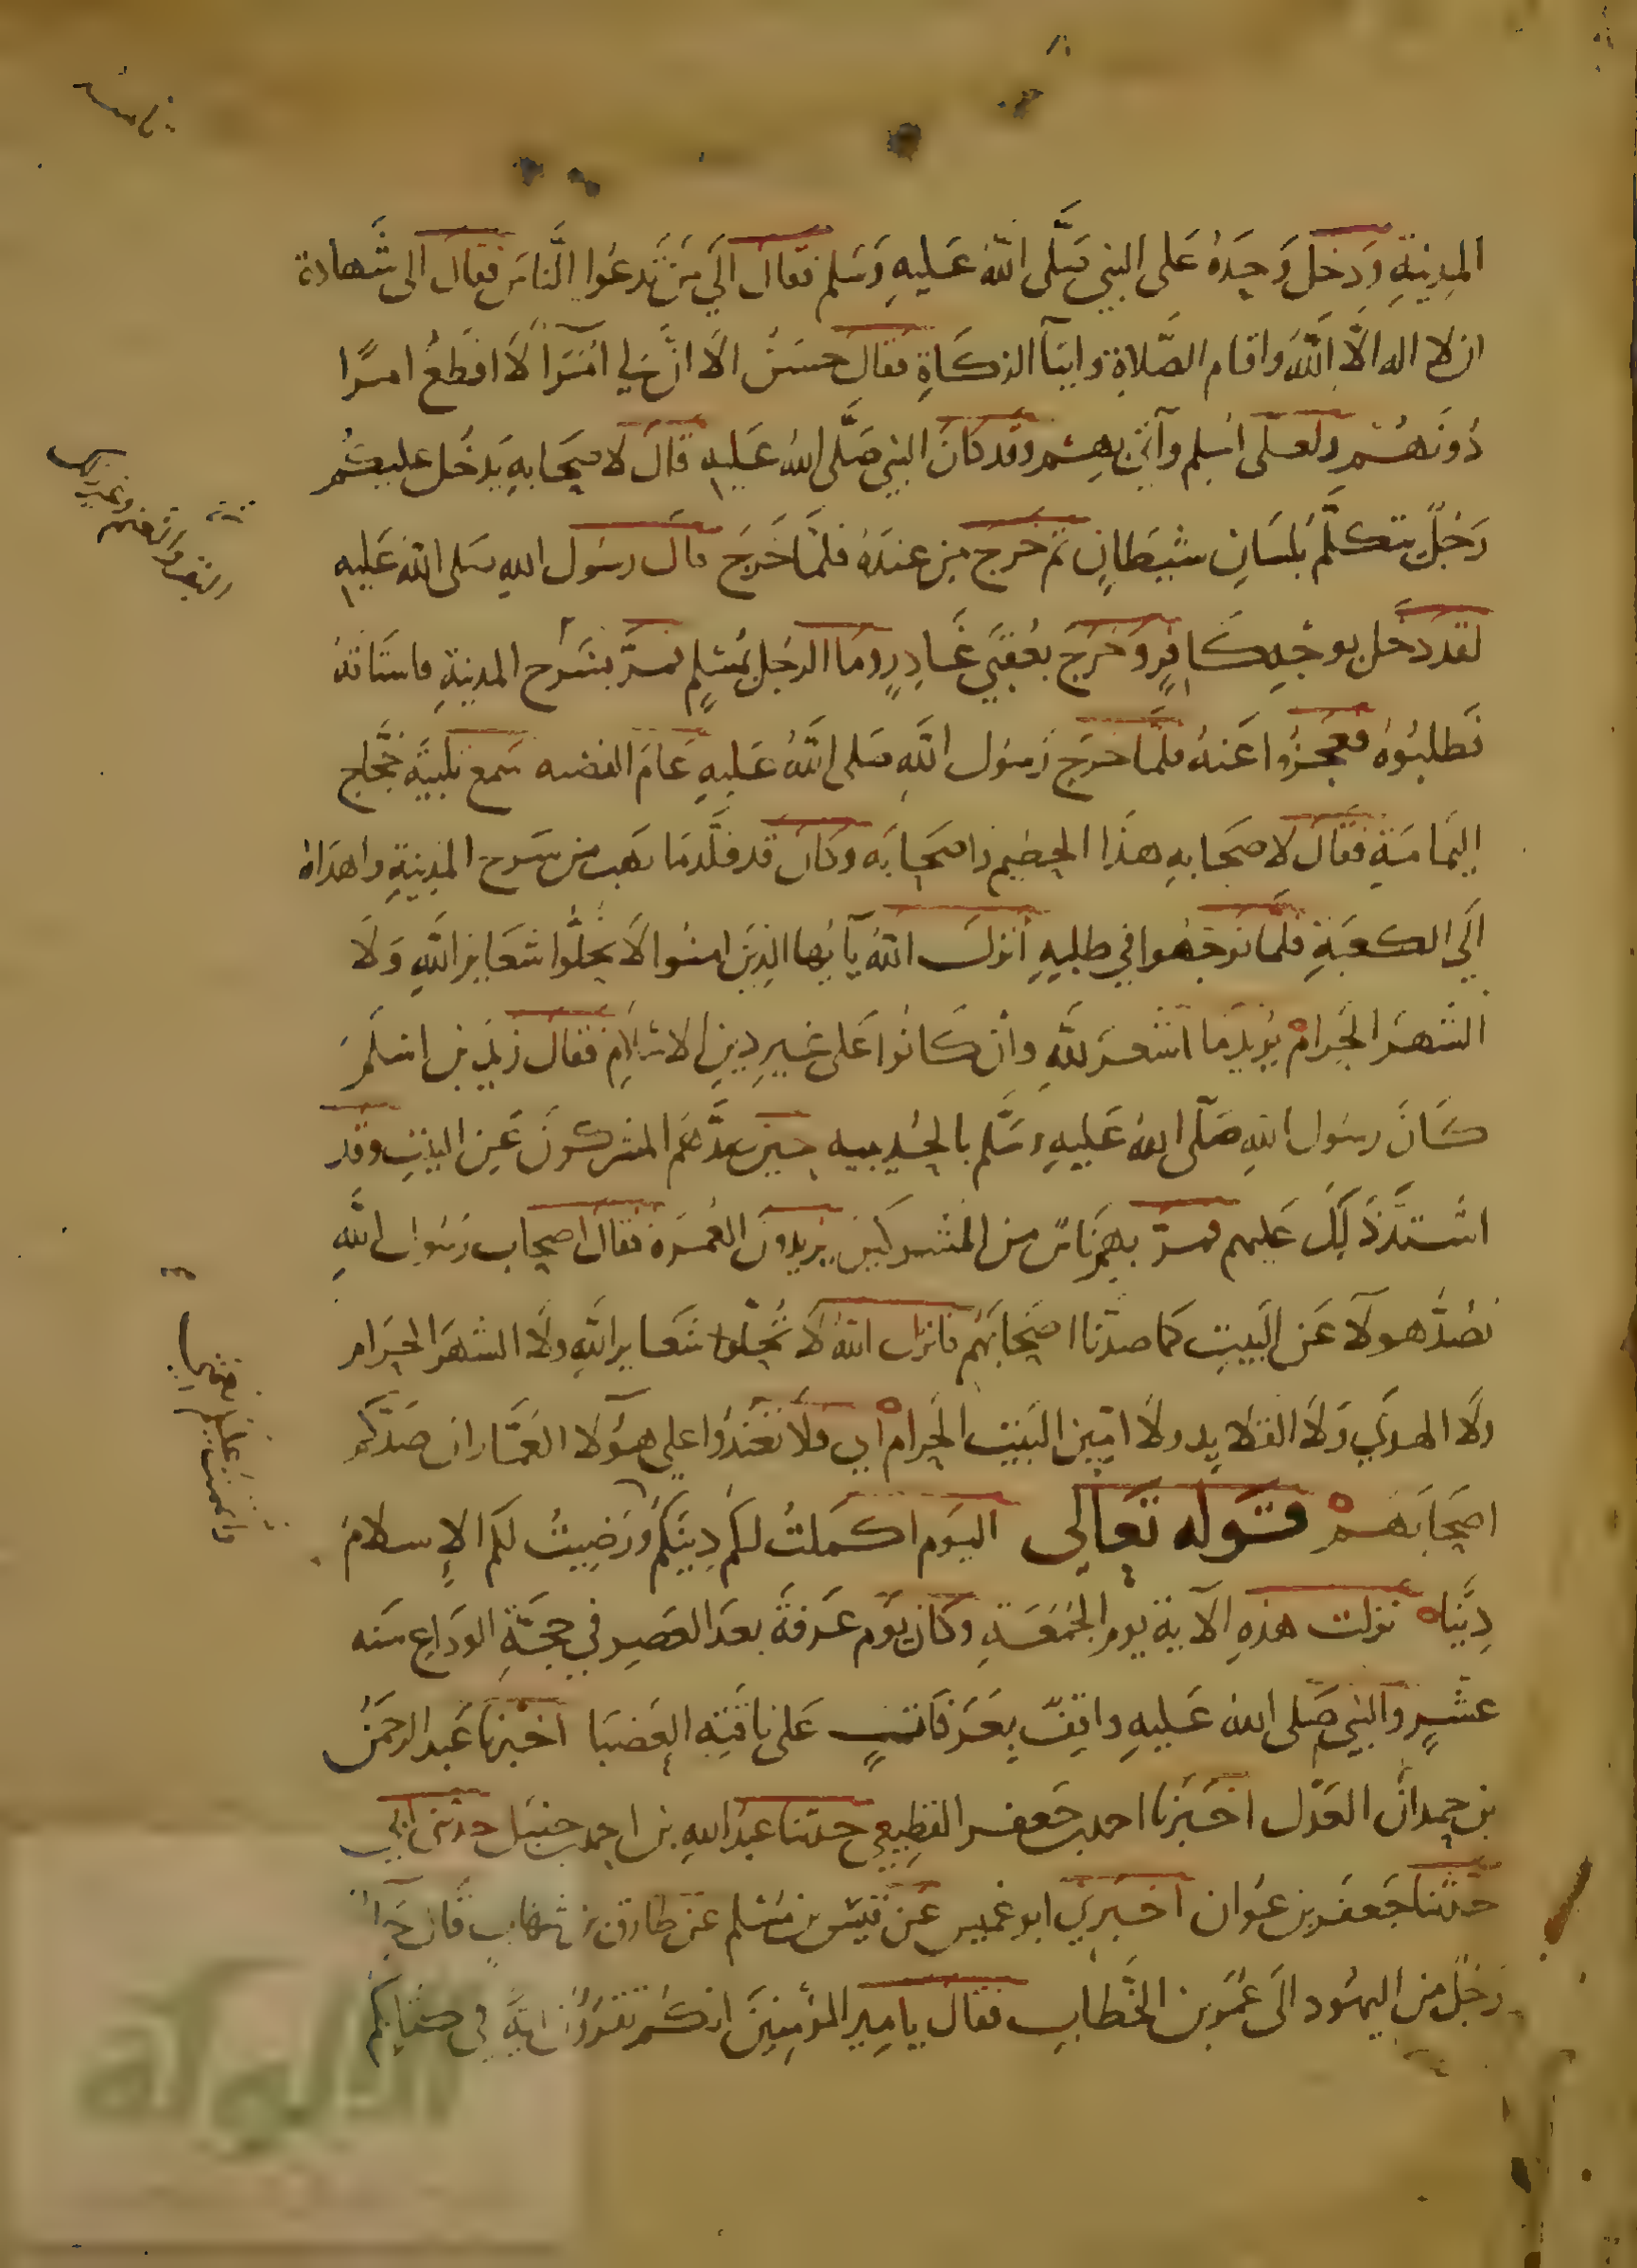 المدينةِ وَدخلَ وَحِدَهُ عَلى النبي صَلَّى اللَّهُ عَليهِ وَسَلم فقالَ اليَ مَن تَدعُوا النَّاسَ فقالَ الى شَهادة
ان لا اله الَّا اللَّهُ واقام الصَّلاةِ وايتآ الزكاةِ فقالَ حسَنٌ الا انَّ لي امَرَآ لَا اقطعُ امرًا
دُونَهُمْ ولعَلى اسلِم وآتى بهِم وقد كانَ النبي صَلَّى اللهُ عَليهِ قالَ لاصحَابهِ يَدخُل عليكُم
رَجُلٌ يتكلَّمُ بلسَانِ شيطَانٍ ثم خرجَ مِن عندهُ فلمَا خَرجَ قالَ رسُول اللهِ صَلى اللهُ عَليهِ
لقدَ دَخل بوَجْهِ كَافِرٍ وَخرجَ بعُقبَي غَادِرٍ ومَا الرجُل بمُسْلِمٍ فمرَّ بسَرْح المدينةِ فاستَاقهُ
فَطلبُوهُ فعجَزُوا عَنهُ فلمَّا خرَج رَسُول اللَّهِ صَلى اللَّهُ عَليهِ عَامَ القضيه سَمع تلبيَة حُجَّاج
اليَمامَةِ فقَالَ لاصحَابهِ هذَا الحطيم واصحَابَه وكانَ قد قلَّدَ مَا نهَب من سَرح المدِينةِ واهدَاهُ
الَي الكعبَةِ فلَمَّا توجهُوا في طلبهِ انزلَ اللهُ يآ ايُها الذِينَ امنُوا لَا تُحِلُّوا شعَايرَ اللَّهِ وَلَا
الشهرَ الحَرام يُريدُ مَا اشعرَ للَّهِ وان كَانُوا عَلى غَيرِ دِينِ الاسْلامِ فقالَ زيدُ بن اسْلَمَ
كَانَ رسُول اللهِ صَلَّى اللهُ عَليهِ وسَلَّم بالحُديبيه حِينَ صدَّهُم المشركونَ عَنِ البَيتِ وقد
اشتدَّ ذَلكَ عَليهم فمرّ بهم نَاسٌ من المشركينَ يُريدونَ العُمرَة فقالَ اصحاب رَسُول اللَّهِ
نصُدُّ هولَآ عَن البَيتِ كما صدّنا اصحَابهُم فانزل اللهُ لَا تُحِلّوا شعَايرَ اللَّهِ ولَا الشهرَ الحَرام
ولَا الهدي وَلَا القلايد ولَا امّينَ البَيت الحَرام اي فلَا تعتَدُوا علي هؤلآ العُمَّار ان صَدّكم
اصحَابَهم قَوله تعَالي اليَوم اكملتُ لكُم دِينَكُم ورَضِيتُ لكم الإسلامَ
دِيناً نزلت هذهِ الآية يوم الجُمُعَةِ وكان يَوم عَرفَة بعدَ العصرِ في حجَّةِ الودَاعِ سَنه
عَشْرٍ والنبي صَلى اللهُ عَليهِ واقفٌ بعَرَفَاتٍ عَلى ناقتِهِ العَضبَا اخبرنا عَبد الرحمَن
بن حمدان العَدْل اخبَرنا احمد بن جَعفر القطِيعي حدثنا عبدُ اللهِ بن احمد بن حنبَل حدثنى ابي
حَدثنا جَعفر بن عَون اخبَرني ابو عُمَيس عَن قيس بن مُسْلم عَن طارق بن شهَابٍ قالَ جَآ
رَجُلٌ من اليهُود الَى عُمَر بن الخَّطاب فقَالَ يا امير المؤمنِينَ انكُم تقرَؤُن ايَةً في كتَابِكُم